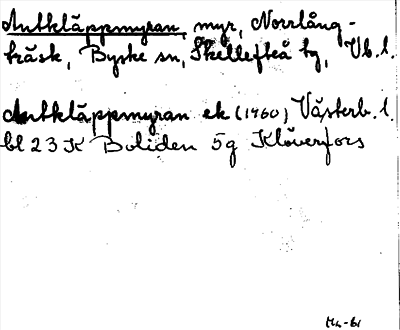 Antkläppmyran, myr, Norrlång-
träsk, Byske sn, Skellefteå tg, Vb. l.
Antkläppmyran ek (1960) Västerb. l.
bl 23 K Boliden 5g Klöverfors
Mg-61